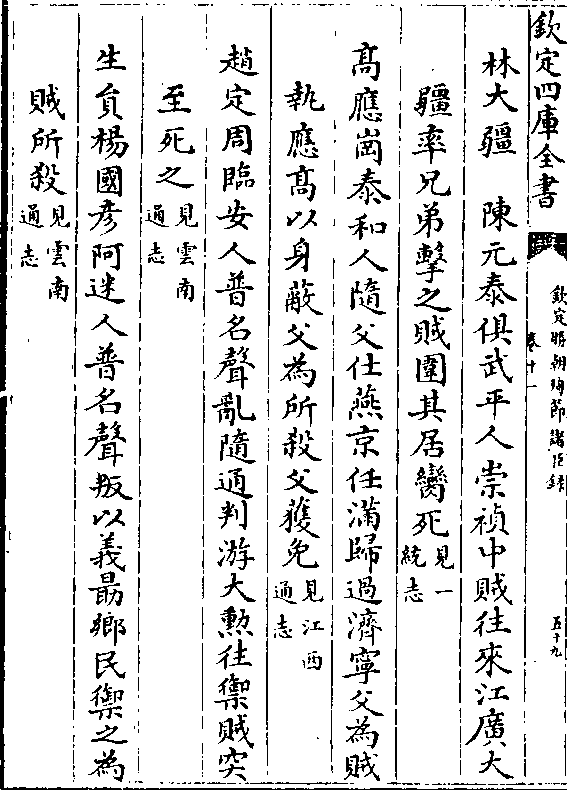 欽定四庫全書
欽定勝朝殉節諸臣錄
卷十一
五十九
林大疆　陳元泰俱武平人崇禎中賊往來江廣大
疆率兄弟擊之賊圍其居臠死見一統志
高應崗泰和人隨父仕燕京任滿歸過濟寧父為賊
執應高以身蔽父為所殺父獲免見江西通志
趙定周臨安人普名聲亂隨通判游大勲往禦賊突
至死之見雲南通志
生員楊國彥阿迷人普名聲叛以義勗鄉民禦之為
賊所殺見雲南通志